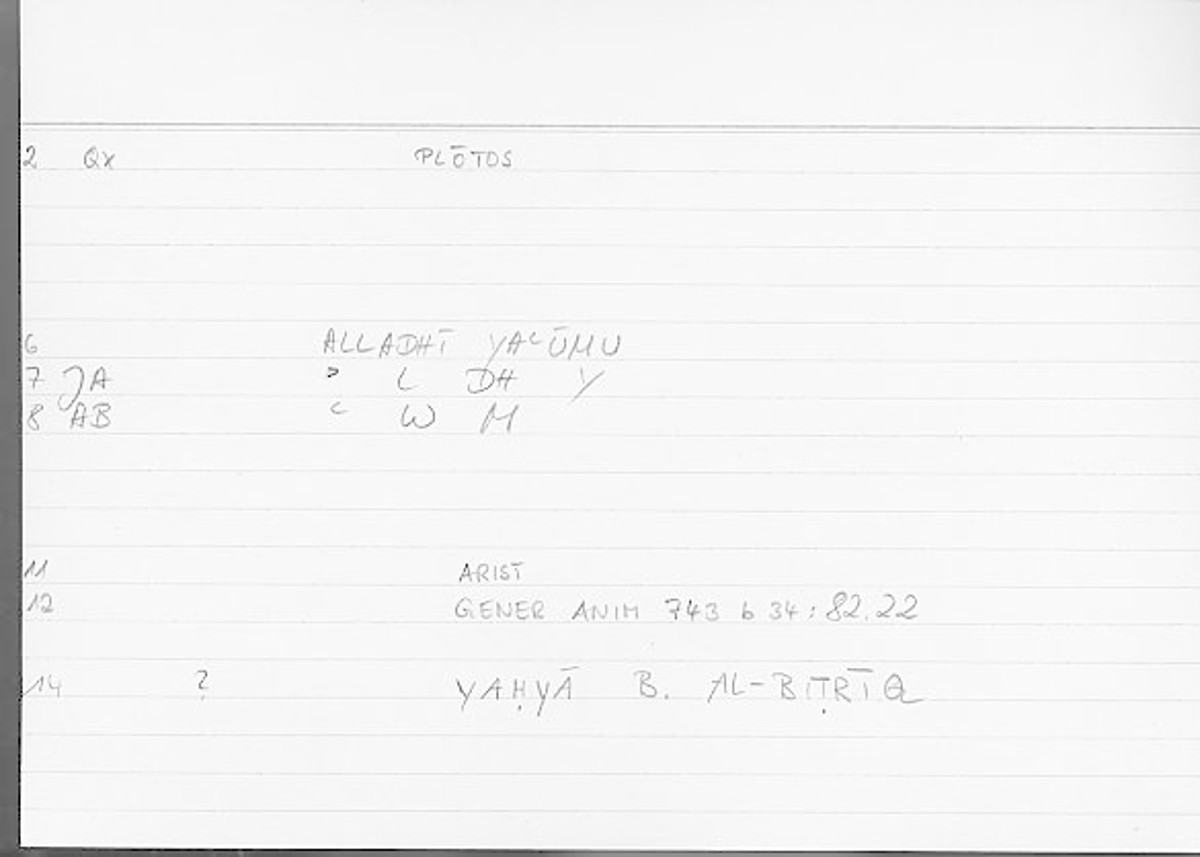 2 QX PLŌTOS
6 ALLADHĪ YAʿŪMU
7 JA ʾ L DH Y
8 AB ʿ W M
11 ARIST
12 GENER ANIM 743 b 34 : 82.22
14 ? YAḤYĀ B. AL-BIṬRĪQ